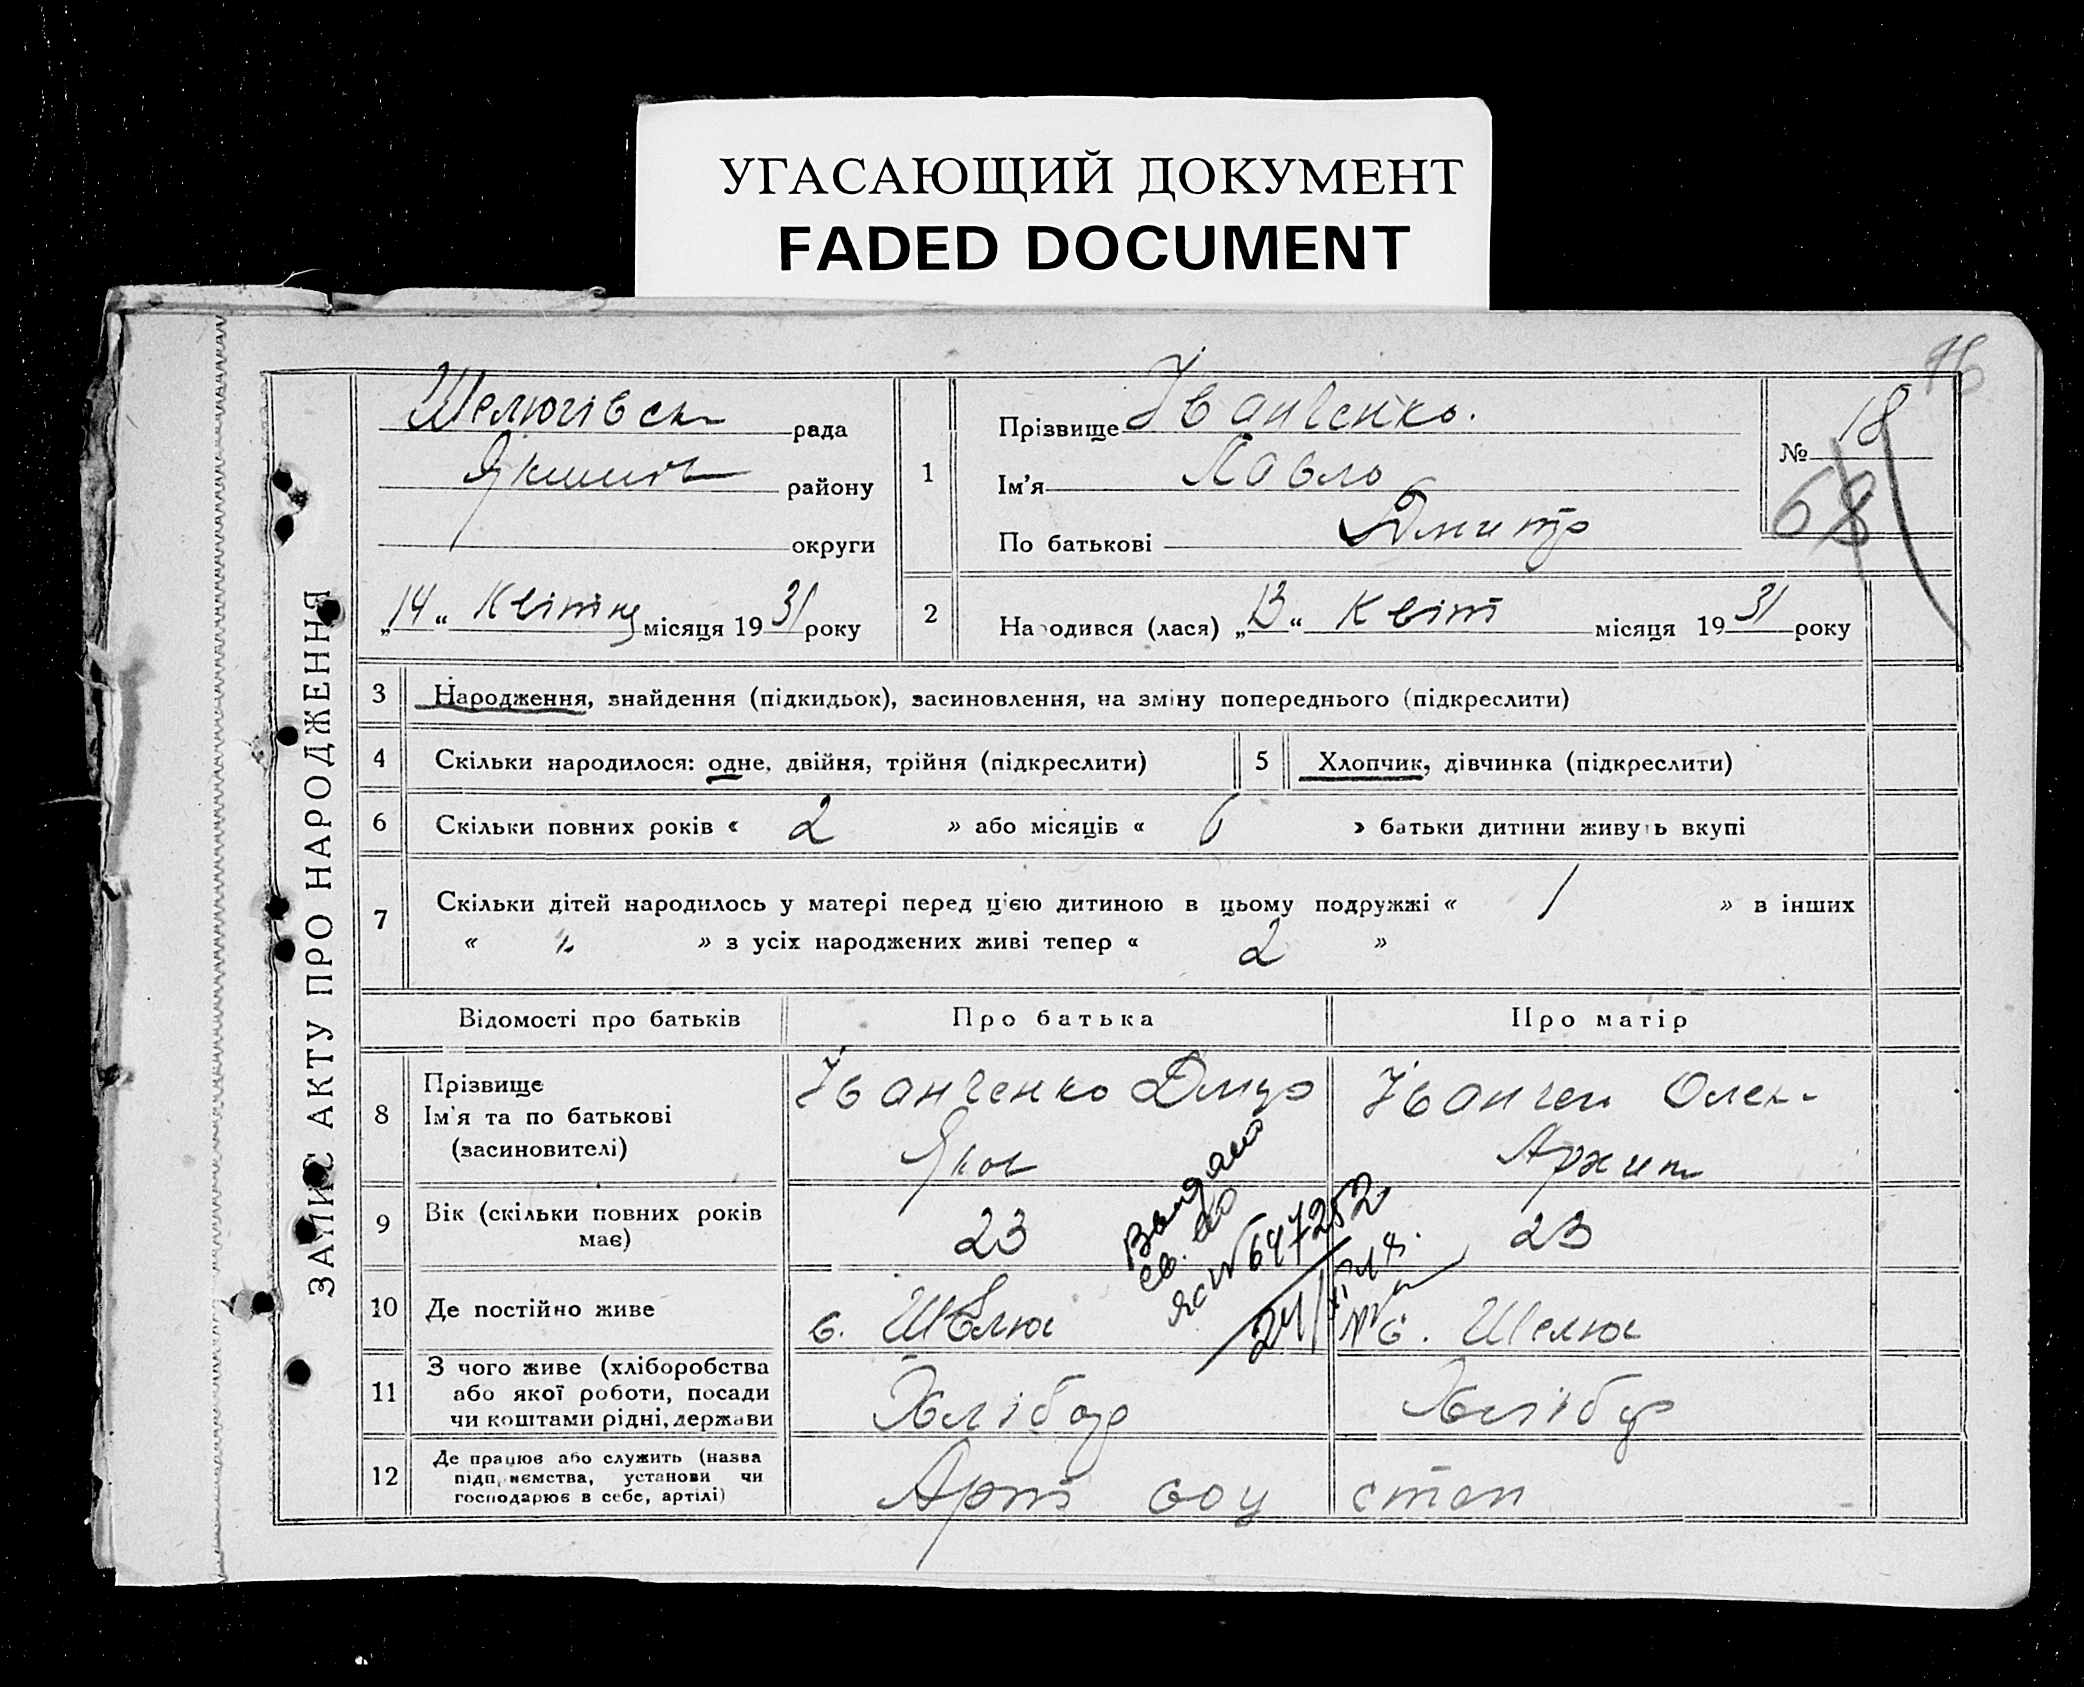 УГАСАЮЩИЙ ДОКУМЕНТ
FADED DOCUMENT
46
ЗАПИС АКТУ ПРО НАРОДЖЕННЯ
Шелюгівськ рада
району
округи
„14“ Квітня місяця 1931 року
1
Прізвище Іванченко.
Ім'я Павло
По батькові Дмитр
№ 18
68
2
Народився (лася) „13“ Квіт місяця 1931 року
3 Народження, знайдення (підкидьок), засиновлення, на зміну попереднього (підкреслити)
4 Скільки народилося: одне, двійня, трійня (підкреслити)
5 Хлопчик, дівчинка (підкреслити)
6 Скільки повних років « 2 » або місяців « 6 » батьки дитини живуть вкупі
7 Скільки дітей народилось у матері перед цією дитиною в цьому подружжі « 1 » в інших
« „ » з усіх народжених живі тепер « 2 »
Відомості про батьків Про батька Про матір
8 Прізвище
Ім'я та по батькові
(засиновителі)
Іванченко Дмитр
Яков
Іванчен Олек
Архип
9 Вік (скільки повних років
має)
23
23
10 Де постійно живе
с. Шелюг
с. Шелюг
11 З чого живе (хліборобства
або якої роботи, посади
чи коштами рідні, держави
Хлібор
Хлібор
12 Де працює або служить (назва
підприємства, установи чи
господарює в себе, артілі)
Арт соц степ
св. до
№ 647252